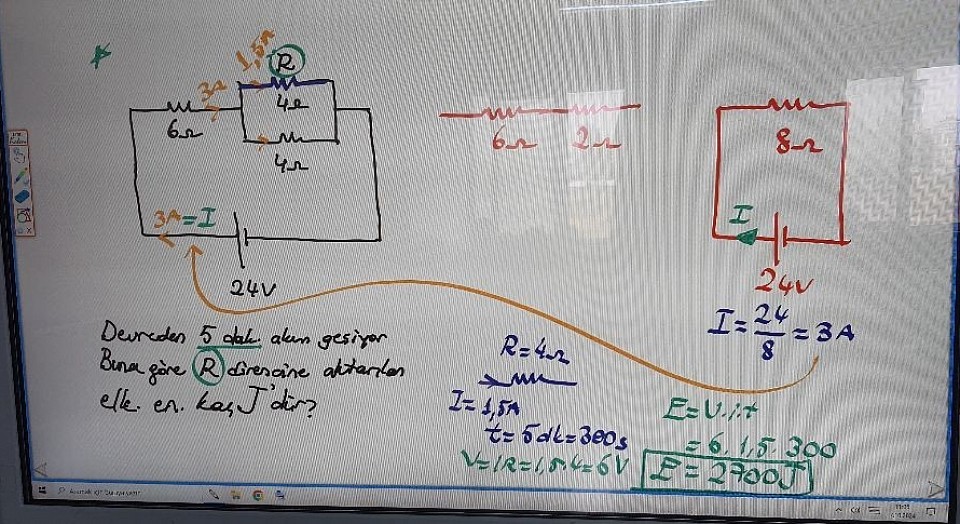 1,5A
R
3A
4Ω
6Ω
4Ω
3A=I
24V
6Ω 2Ω
8Ω
I
24V
I=24/8=3A
Devreden 5 dak. akım geçiyor
Buna göre R direncine aktarılan
elk. en. kaç J'dür?
R=4Ω
I=1,5A
t=5dk=300s
V=IR=1,5.4=6V
E=V.i.t
=6.1,5.300
E=2700J